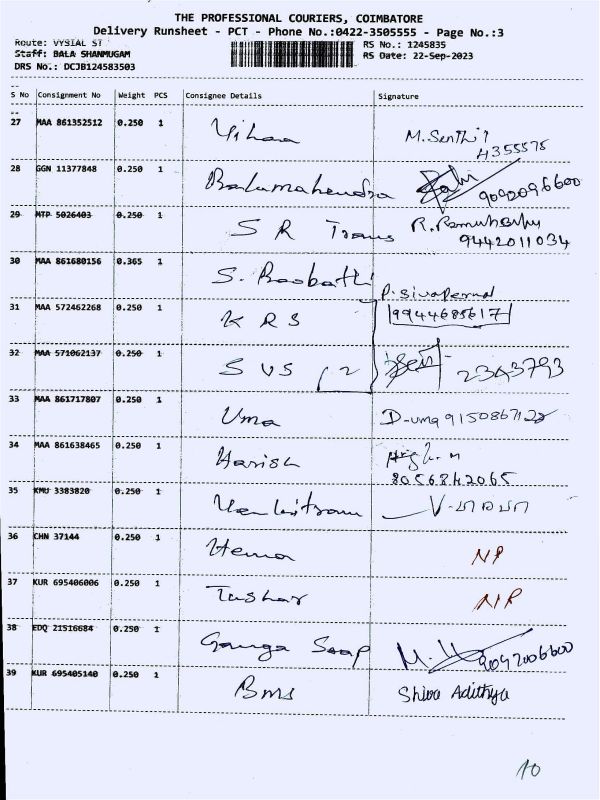 THE PROFESSIONAL COURIERS, COIMBATORE
Delivery Runsheet - PCT - Phone No.:0422-3505555 - Page No.:3
Route: VYSIAL ST
RS No.: 1245835
Staff: BALA SHANMUGAM
RS Date: 22-Sep-2023
DRS No.: DCJB124583503
S No Consignment No Weight PCS Consignee Details Signature
27 MAA 861352512 0.250 1 Vihaa M.Senthil
4355575
28 GGN 11377848 0.250 1 Balamahendra 9092096600
29 MTP 5026403 0.250 1 S R Trans R.
9442011034
30 MAA 861680156 0.365 1 S. Boobathi
P. Sivaperumal
31 MAA 572462268 0.250 1 K R S 9944685617
32 MAA 571062137 0.250 1 S V S (2 2343793
33 MAA 861717807 0.250 1 Uma D-uma 9150867122
34 MAA 861638465 0.250 1 Harish
8056842065
35 KMU 3383820 0.250 1 Venkitram V-
36 CHN 37144 0.250 1 Hema NP
37 KUR 695406006 0.250 1 Tushar NP
38 EDQ 21516684 0.250 1 Ganga Soap 9092006600
39 KUR 695405140 0.250 1 Bms Shiva Adithya
10